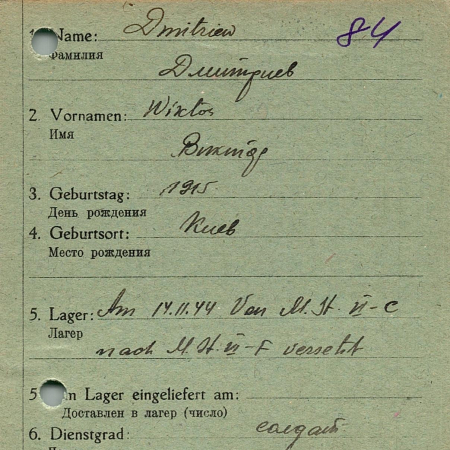 1. Name: Dmitriew 84
Фамилия
Дмитриев
2. Vornamen: Wiktor
Имя
Виктор
3. Geburtstag: 1915
День рождения
4. Geburtsort: Киев
Место рождения
5. Lager: Am 14.11.44 Von M. St. VI-C
Лагер
nach M. St. VI-F versetzt
5 Lager eingeliefert am:
Доставлен в лагер (число)
6. Dienstgrad: солдат